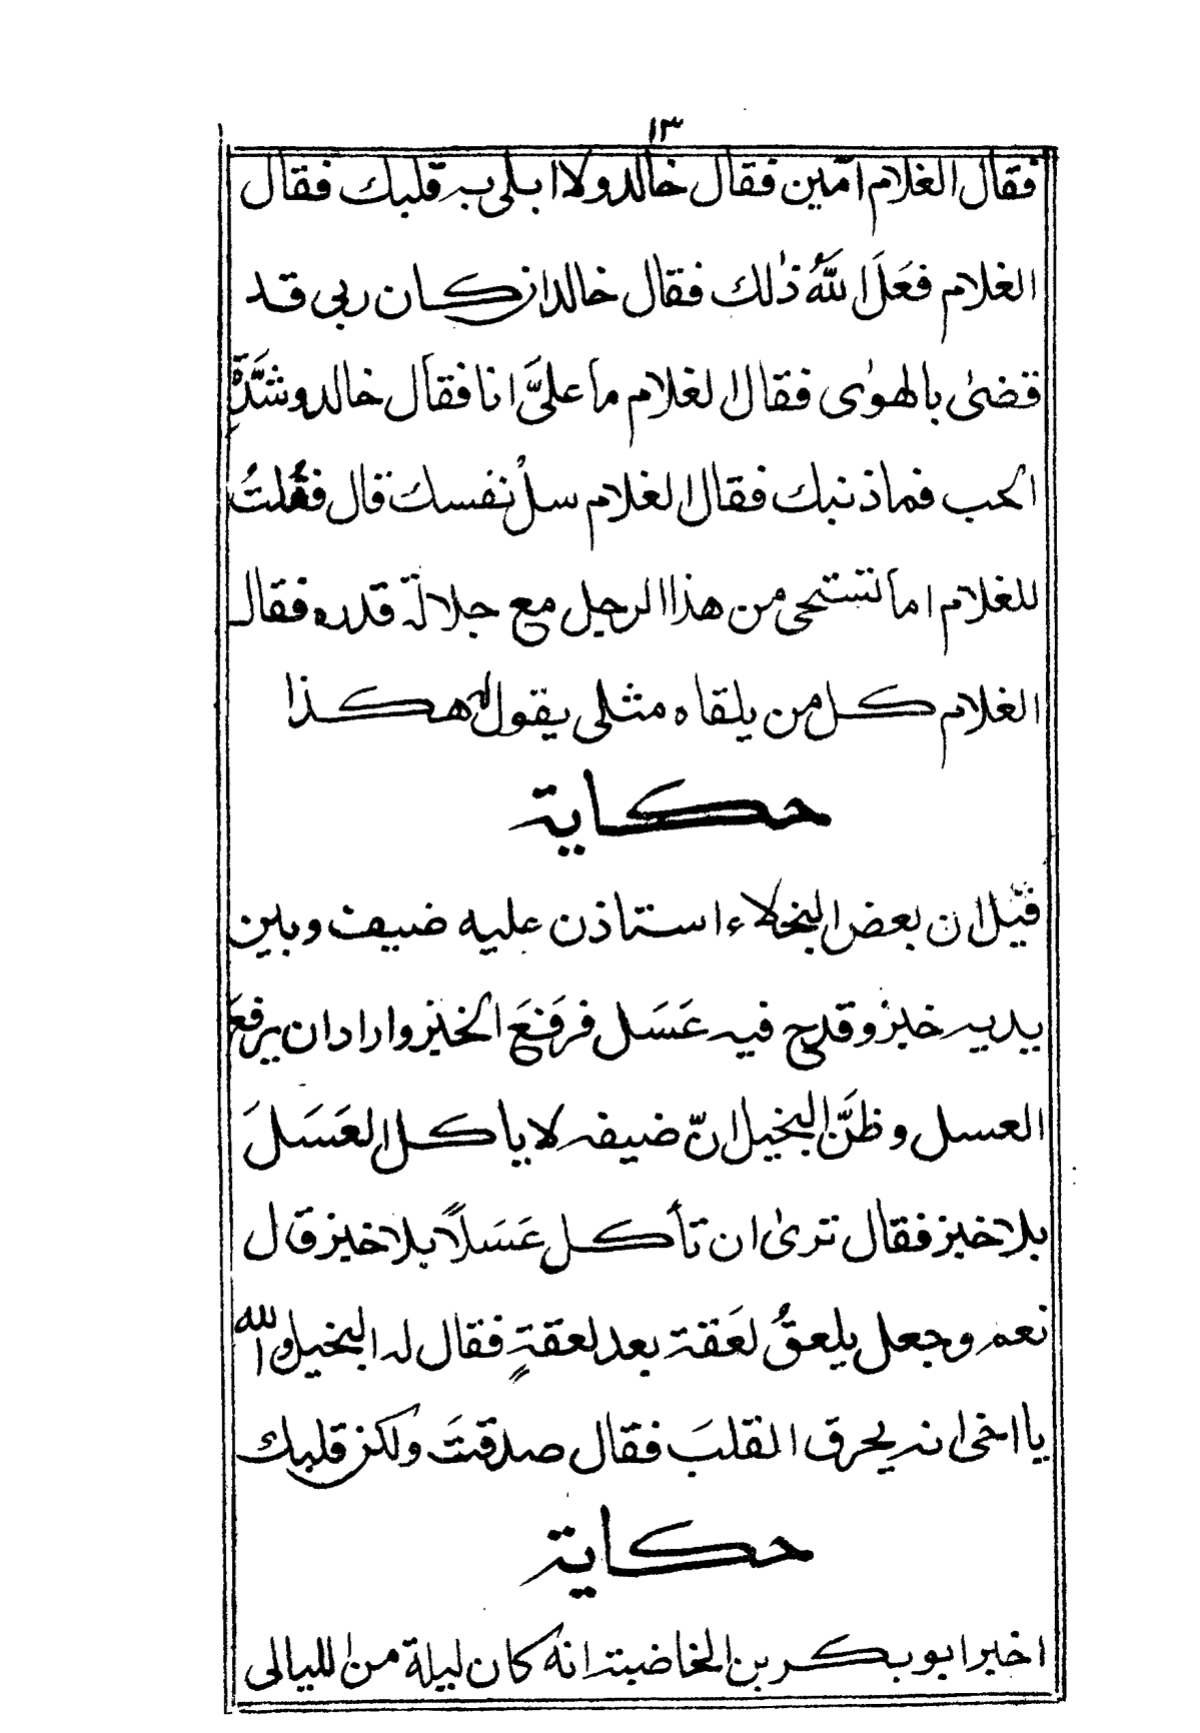 ١٣
فقال الغلام امّين فقال خالد ولا ابلى به قلبك فقال
الغلام فعَلَ اللهُ ذٰلك فقال خالد ان كان ربى قد
قضىٰ بالهوٰى فقال الغلام ما علىَّ انا فقال خالد وشدَّةِ
الحب فما ذنبك فقال الغلام سلْ نفسك قال فقُلتُ
للغلام اما تستحى من هذا الرجل مع جلالة قدره فقال
الغلام كل من يلقاه مثلى يقول له هكذا
حكاية
قيل ان بعض البخلاء استاذن عليه ضيف وبين
يديه خبز وقدح فيه عَسَل فرفَعَ الخبز واراد ان يرفعَ
العسل وظنَّ البخيل انّ ضيفه لا ياكل العَسَلَ
بلا خبز فقال ترىٰ ان تأكل عَسَلًا بلا خبز قال
نعم وجعل يلعقُ لعَقة بعد لعقةٍ فقال له البخيل والله
يا اخى انه يحرق القلبَ فقال صدقتَ ولكن قلبك
حكاية
اخبر ابو بكر بن الخاضبة انه كان ليلة من الليالى